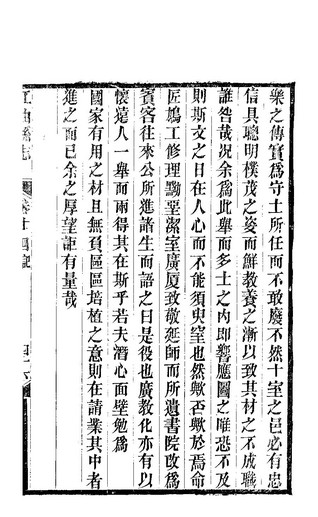 樂之傳實爲守土所任而不敢廢不然十室之邑必有忠
信具聰明樸茂之姿而鮮教養之漸以致其材之不成職
誰咎哉况余爲此舉而多士之內卽響應圖之唯恐不及
則斯文之日在人心而不能須臾窒也然歟否歟於焉命
匠鳩工修理黝堊潔室廣厦致敬延師而所遺書院改爲
賓客往來公所進諸生而語之曰是役也廣教化亦有以
懷遠人一舉而兩得其在斯乎若夫潛心面壁勉爲
國家有用之材且無負區區培植之意則在請業其中者
進之而已余之厚望詎有量哉
卷十四記